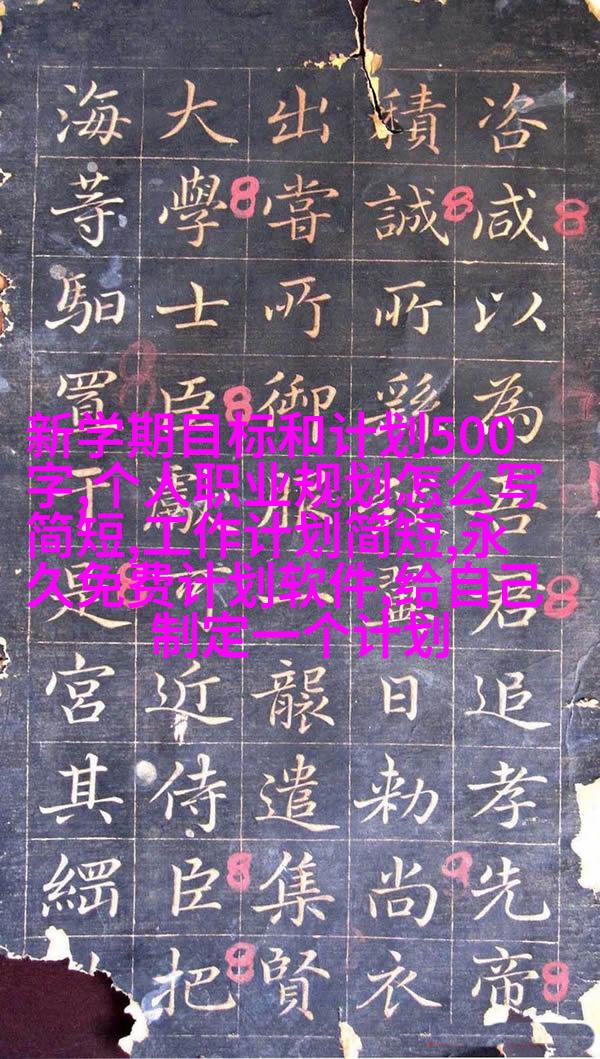 咨咸以為吾君追孝先帝
積誠所日勑尚衣
出嘗所御服一襲遣集賢
大學士臣近侍臣把
海等馹置于是宮其
8
8
8
8
8
8
8
9
8
9
新学期目标和计划500
字,个人职业规划怎么写
简短,工作计划简短,永
久免费计划软件,给自己
制定一个计划